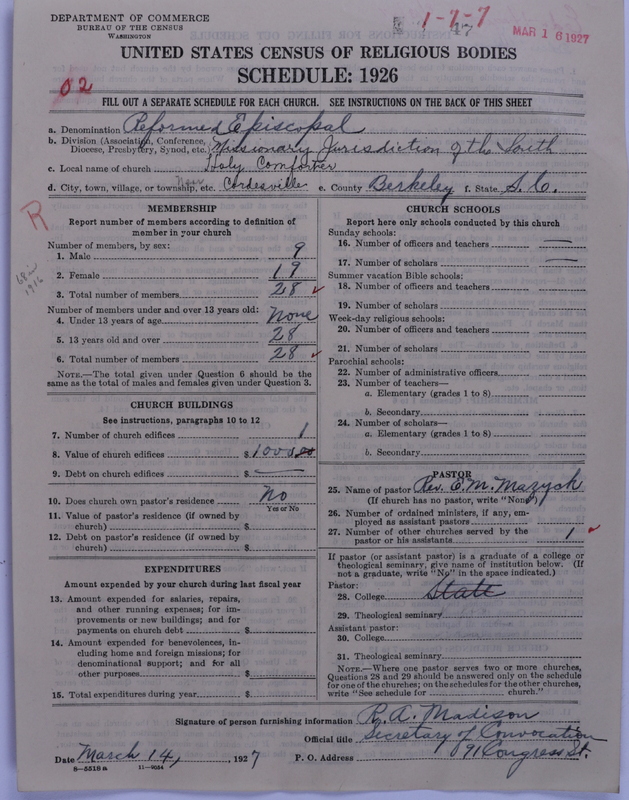 DEPARTMENT OF COMMERCE
BUREAU OF THE CENSUS
WASHINGTON
1-7-7
47
MAR 16 1927
UNITED STATES CENSUS OF RELIGIOUS BODIES
SCHEDULE: 1926
02
FILL OUT A SEPARATE SCHEDULE FOR EACH CHURCH. SEE INSTRUCTIONS ON THE BACK OF THIS SHEET
a. Denomination Reformed Episcopal
b. Division (Association, Conference, Diocese, Presbytery, Synod, etc.) Missionary Jurisdiction of the South
c. Local name of church Holy Comforter
d. City, town, village, or township, etc. Near Cordesville e. County Berkeley f. State S.C.
R
MEMBERSHIP
Report number of members according to definition of
member in your church
Number of members, by sex:
1. Male 9
2. Female 19
3. Total number of members 28
Number of members under and over 13 years old:
4. Under 13 years of age None
5. 13 years old and over 28
6. Total number of members 28
NOTE.—The total given under Question 6 should be
same as the total of males and females given under Question 3.
CHURCH BUILDINGS
See instructions, paragraphs 10 to 12
7. Number of church edifices 1
8. Value of church edifices $ 1000.00
9. Debt on church edifices $ —
10. Does church own pastor's residence No
Yes or No
11. Value of pastor's residence (if owned by
church) $
12. Debt on pastor's residence (if owned by
church) $
EXPENDITURES
Amount expended by your church during last fiscal year
13. Amount expended for salaries, repairs,
and other running expenses; for im-
provements or new buildings; and for
payments on church debt $
14. Amount expended for benevolences, in-
cluding home and foreign missions; for
denominational support; and for all
other purposes $
15. Total expenditures during year $
CHURCH SCHOOLS
Report here only schools conducted by this church
Sunday schools:
16. Number of officers and teachers —
17. Number of scholars —
Summer vacation Bible schools:
18. Number of officers and teachers
19. Number of scholars
Week-day religious schools:
20. Number of officers and teachers
21. Number of scholars
Parochial schools:
22. Number of administrative officers
23. Number of teachers—
a. Elementary (grades 1 to 8)
b. Secondary
24. Number of scholars—
a. Elementary (grades 1 to 8)
b. Secondary
PASTOR
25. Name of pastor Rev. E. M. Mazyck
(If church has no pastor, write "None")
26. Number of ordained ministers, if any, em-
ployed as assistant pastors
27. Number of other churches served by the
pastor or his assistants 1
If pastor (or assistant pastor) is a graduate of a college or
theological seminary, give name of institution below. (If
not a graduate, write "No" in the space indicated.)
Pastor:
28. College State
29. Theological seminary
Assistant pastor:
30. College
31. Theological seminary
NOTE.—Where one pastor serves two or more churches,
Questions 28 and 29 should be answered only on the schedule
for one of the churches; on the schedules for the other churches,
write "See schedule for church."
Signature of person furnishing information R. A. Madison
Official title Secretary of Convocation
Date March 14, 1927 P. O. Address 91 Congress St.
8—5518 a 11—9054